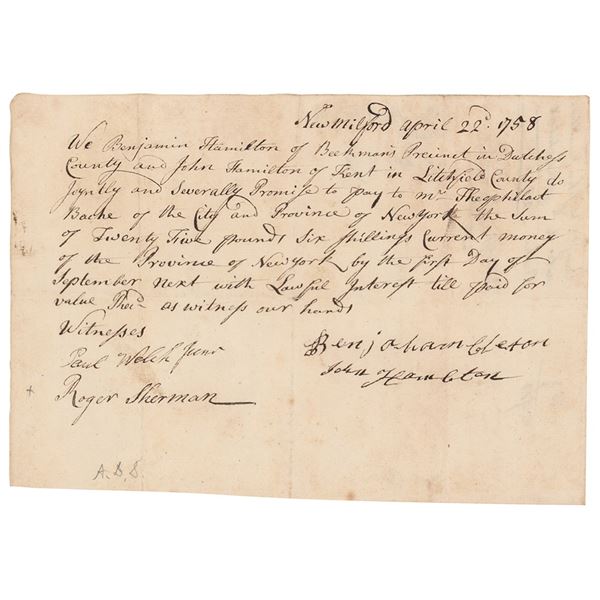 New Milford April 22d. 1758
We Benjamin Hamilton of Beekman's Precinct in Dutchess
County and John Hamilton of Kent in Litchfield County do
Joyntly and Severally Promise to pay to mr. Theophilact
Bache of the City and Province of New York the Sum
of Twenty Five pounds Six shillings Current money
of the Province of New York by the first Day of
September next with Lawful Interest till paid for
value as witness our hands
Witnesses
Paul Welch Junr
Roger Sherman
Benja
John
A.D.S.